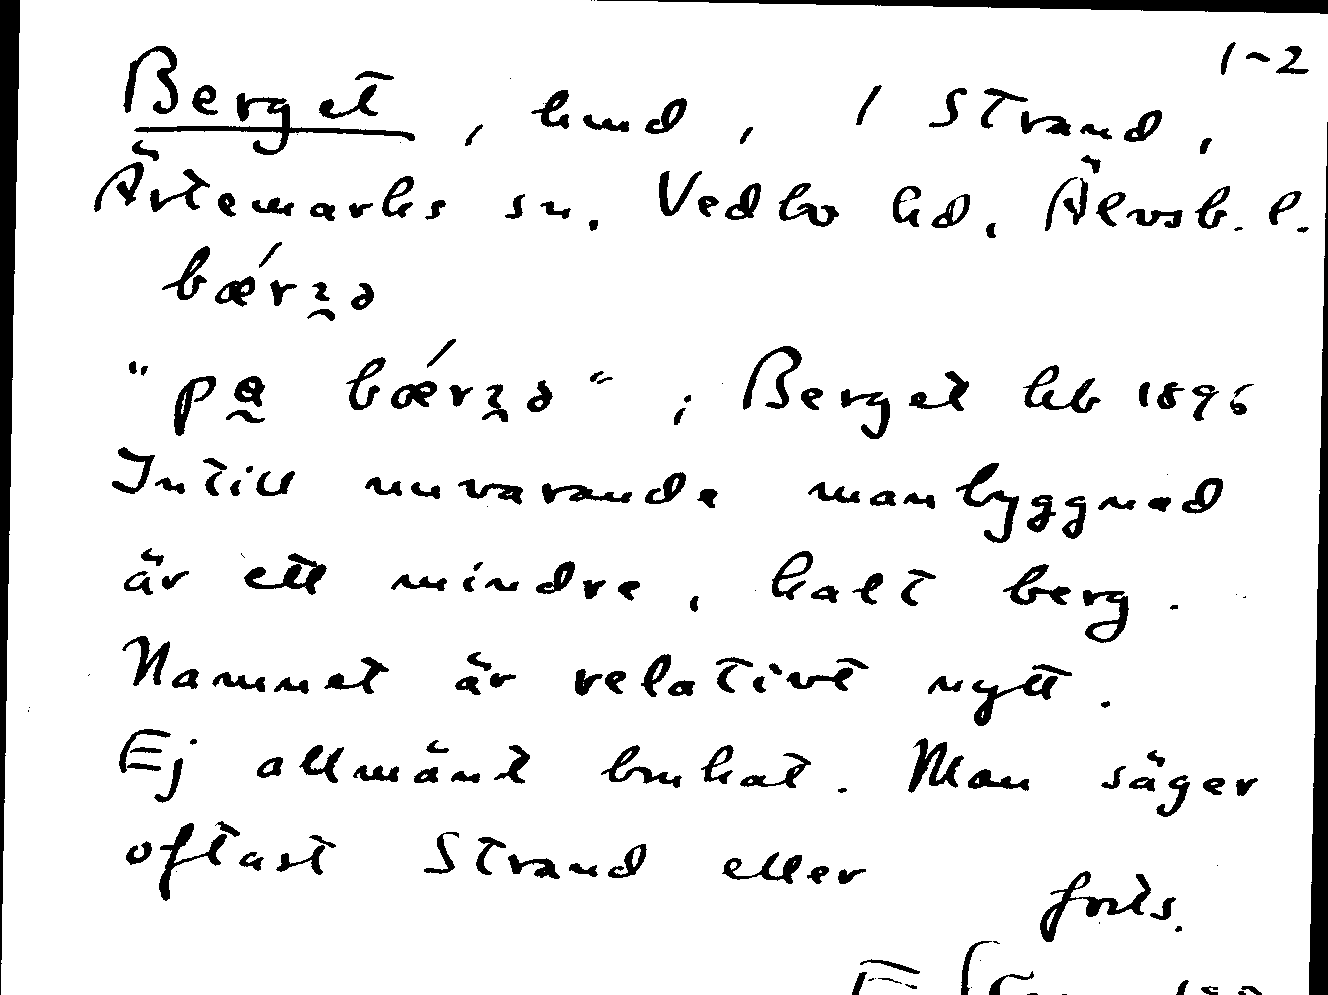 1-2
Berget, hmd, 1 Strand,
Ärtemarks sn. Vedbo hd, Älvsb. l.
bǽrʒə
"pa bǽrʒə"; Berget hb 1896
Intill nuvarande manbyggnad
är ett mindre, kalt berg.
Namnet är relativt nytt.
Ej allmänt brukat. Man säger
oftast Strand eller
forts.